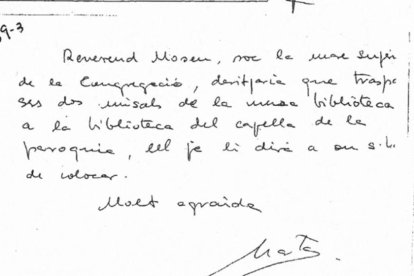 9-3
Reverend Mosen, soc la mare super
de la Congregació, desitjaria que traspa
ses dos misals de la meva biblioteca
a la biblioteca del capella de la
paroquia, ell ja li dirá a on s.
de colocar.
Molt agraida
Mata